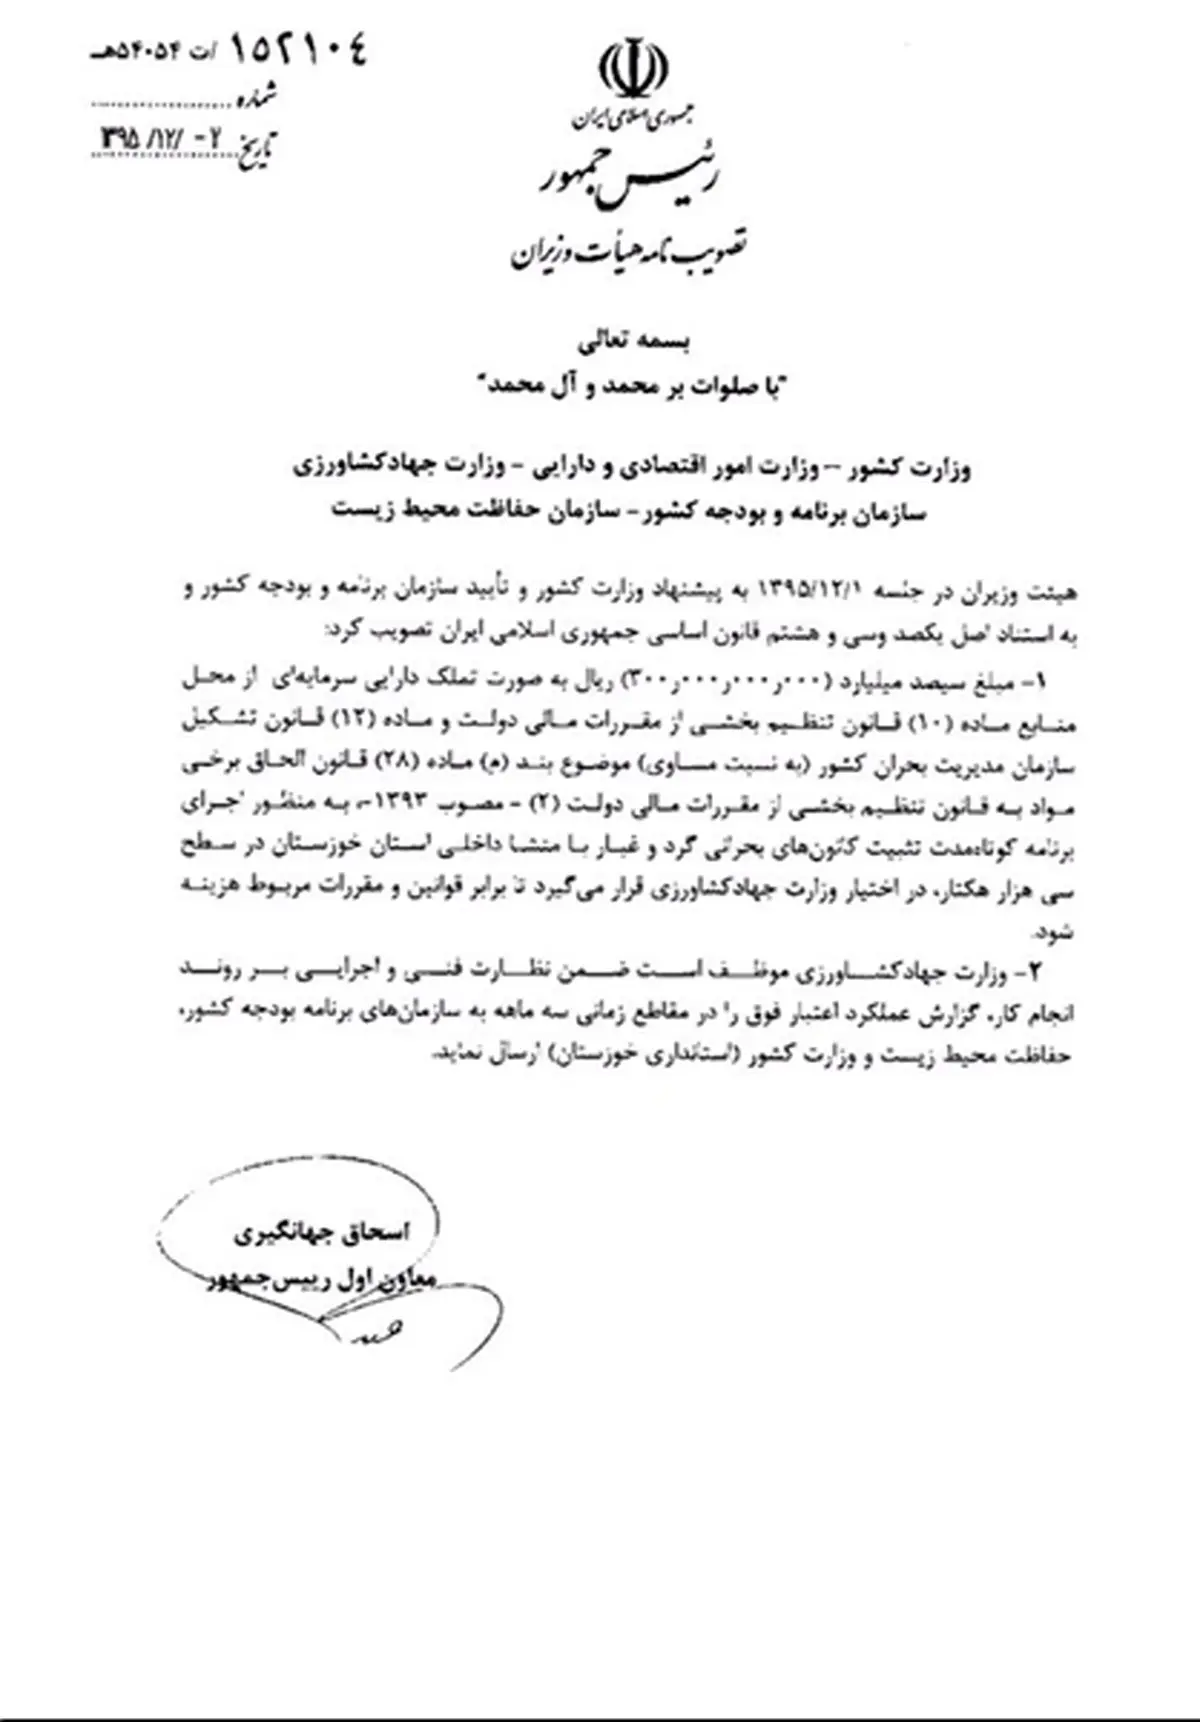 ۱۵۲۱۰٤ /ت ۵۴۰۵۴هـ
شماره
تاریخ ۳۹۵/۱۲/ -۲
جمهوری اسلامی ایران
رئیس جمهور
تصویب نامه هیأت وزیران
بسمه تعالی
"با صلوات بر محمد و آل محمد"
وزارت کشور – وزارت امور اقتصادی و دارایی - وزارت جهادکشاورزی
سازمان برنامه و بودجه کشور - سازمان حفاظت محیط زیست
هیئت وزیران در جلسه ۱۳۹۵/۱۲/۱ به پیشنهاد وزارت کشور و تأیید سازمان برنامه و بودجه کشور و
به استناد اصل یکصد وسی و هشتم قانون اساسی جمهوری اسلامی ایران تصویب کرد:
۱- مبلغ سیصد میلیارد (۳۰۰ر۰۰۰ر۰۰۰ر۰۰۰) ریال به صورت تملک دارایی سرمایه‌ای از محل
منابع ماده (۱۰) قانون تنظیم بخشی از مقررات مالی دولت و ماده (۱۲) قانون تشکیل
سازمان مدیریت بحران کشور (به نسبت مساوی) موضوع بند (م) ماده (۲۸) قانون الحاق برخی
مواد به قانون تنظیم بخشی از مقررات مالی دولت (۲) - مصوب ۱۳۹۳-، به منظور اجرای
برنامه کوتاه‌مدت تثبیت کانون‌های بحرانی گرد و غبار با منشا داخلی استان خوزستان در سطح
سی هزار هکتار، در اختیار وزارت جهادکشاورزی قرار می‌گیرد تا برابر قوانین و مقررات مربوط هزینه
شود.
۲- وزارت جهادکشاورزی موظف است ضمن نظارت فنی و اجرایی بر روند
انجام کار، گزارش عملکرد اعتبار فوق را در مقاطع زمانی سه ماهه به سازمان‌های برنامه بودجه کشور،
حفاظت محیط زیست و وزارت کشور (استانداری خوزستان) ارسال نماید.
اسحاق جهانگیری
معاون اول رییس‌جمهور